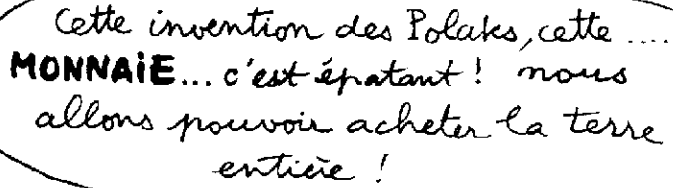 Cette invention des Polaks, cette ....
MONNAiE... c'est épatant ! nous
allons pouvoir acheter la terre
entière !